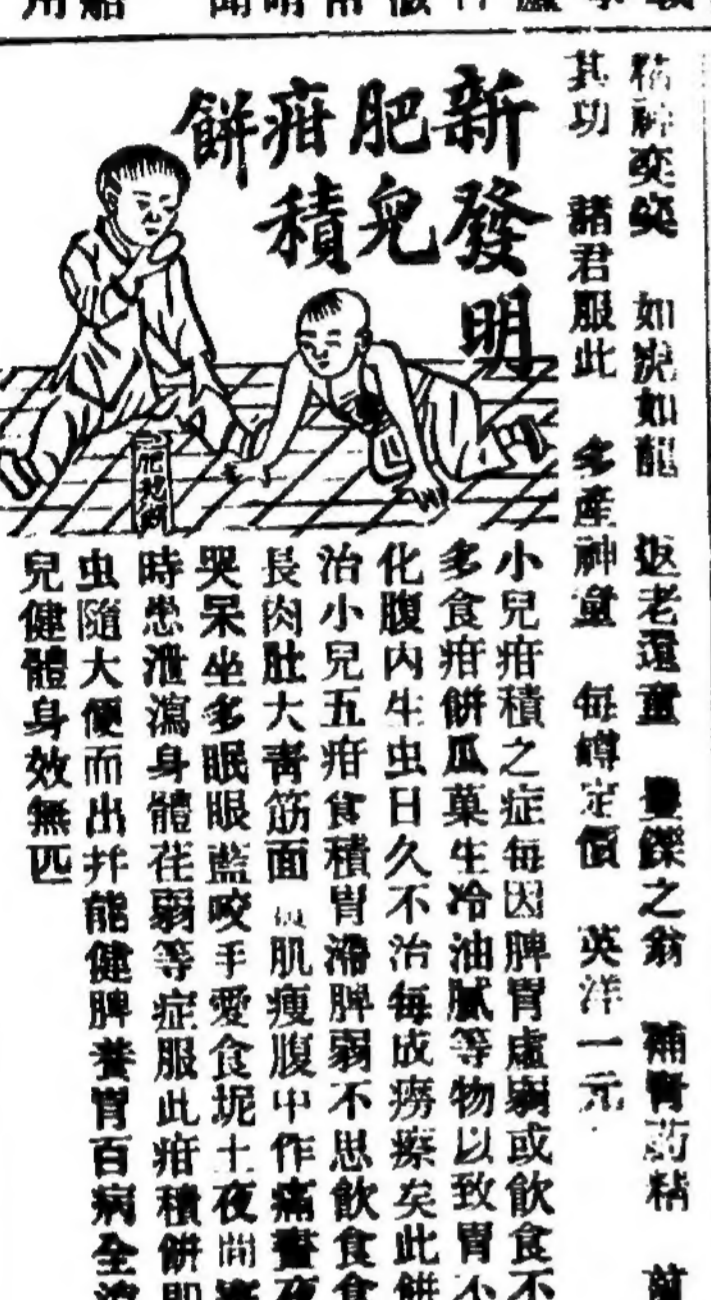 精神奕奕 如虎如龍 返老還童 矍鑠之翁 補腎药精
其功 諸君服此 多產神童 每罇定價 英洋一元
新發明
肥兒
疳積
餅
小兒疳積之症每因脾胃虛弱或飲食不
多食疳餅瓜菓生冷油膩等物以致胃不
化腹內生虫日久不治每成癆瘵矣此餅
治小兒五疳食積胃滯脾弱不思飲食食
長肉肚大青筋面 肌瘦腹中作痛晝夜
哭呆坐多眠眼藍咬手愛食坭土夜間
時患泄瀉身體茌弱等症服此疳積餅即
虫隨大便而出并能健脾養胃百病全
兒健體身效無匹